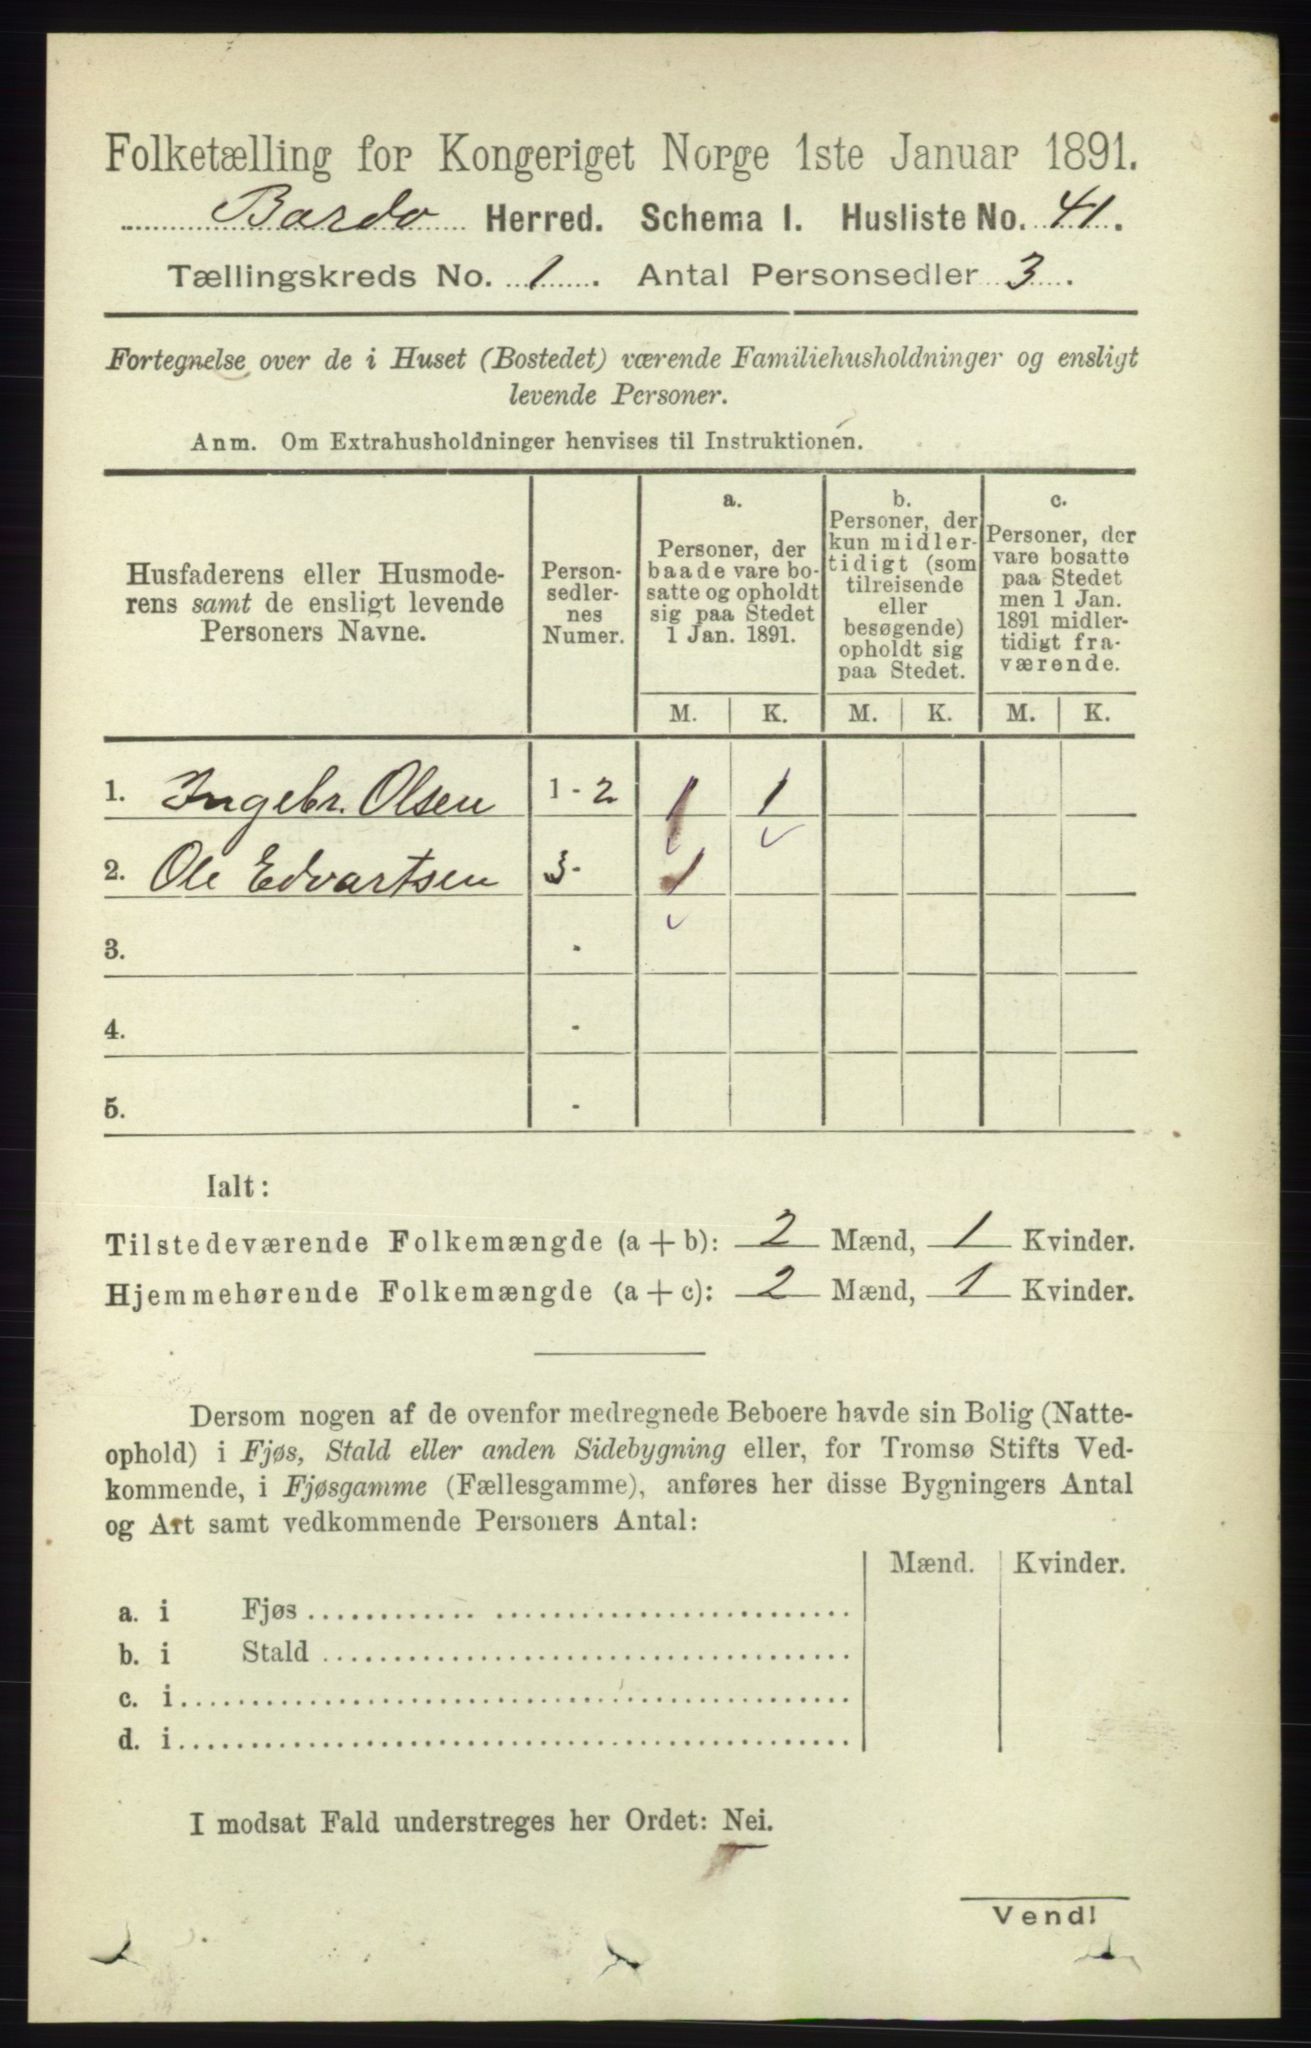 Folketælling for Kongeriget Norge 1ste Januar 1891.
Bardo Herred. Schema I. Husliste No. 41.
Tællingskreds No. 1. Antal Personsedler 3.
Fortegnelse over de i Huset (Bostedet) værende Familiehusholdninger og ensligt
levende Personer.
Anm. Om Extrahusholdninger henvises til Instruktionen.
Husfaderens eller Husmode-
rens samt de ensligt levende
Personers Navne.
Person-
sedler-
nes
Numer.
a.
Personer, der
baade vare bo-
satte og opholdt
sig paa Stedet
1 Jan. 1891.
b.
Personer, der
kun midler-
tidigt (som
tilreisende
eller
besøgende)
opholdt sig
paa Stedet.
c.
Personer, der
vare bosatte
paa Stedet
men 1 Jan.
1891 midler-
tidigt fra-
værende.
M. K. M. K. M. K.
1. Ingebr. Olsen 1 - 2 1 1
2. Ole Edvartsen 3 - 1
3. -
4. -
5. -
Ialt:
Tilstedeværende Folkemængde (a + b): 2 Mænd, 1 Kvinder.
Hjemmehørende Folkemængde (a + c): 2 Mænd, 1 Kvinder.
Dersom nogen af de ovenfor medregnede Beboere havde sin Bolig (Natte-
ophold) i Fjøs, Stald eller anden Sidebygning eller, for Tromsø Stifts Ved-
kommende, i Fjøsgamme (Fællesgamme), anføres her disse Bygningers Antal
og Art samt vedkommende Personers Antal:
Mænd. Kvinder.
a. i Fjøs
b. i Stald
c. i
d. i
I modsat Fald understreges her Ordet: Nei.
Vend!